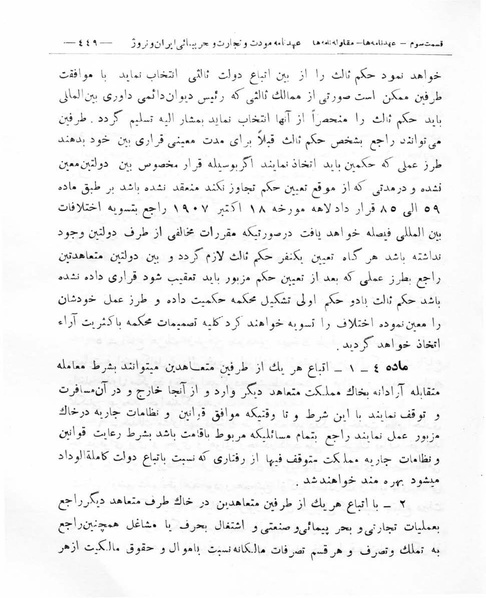 قسمت سوم – عهدنامه‌ها – مقاوله‌نامه‌ها عهدنامه مودت و تجارت و بحرپیمائی ایران و نروژ —٤٤٩—
خواهد نمود حکم ثالث را از بین اتباع دولت ثالثی انتخاب نماید با موافقت
طرفین ممکن است صورتی از ممالک ثالثی که رئیس دیوان دائمی داوری بین‌المللی
باید حکم ثالث را منحصراً از آنها انتخاب نماید بمشار الیه تسلیم گردد. طرفین
می‌توانند راجع بشخص حکم ثالث قبلاً برای مدت معینی قراری بین خود بدهند
طرز عملی که حکمین باید اتخاذ نمایند اگر بوسیله قرار مخصوص بین دولتین معین
نشده و در مدتی که از موقع تعیین حکم تجاوز نکند منعقد نشده باشد بر طبق ماده
٥٩ الی ٨٥ قرار داد لاهه مورخه ١٨ اکتبر ١٩٠٧ راجع بتسویه اختلافات
بین المللی فیصله خواهد یافت در صورتیکه مقررات مخالفی از طرف دولتین وجود
نداشته باشد هر گاه تعیین یکنفر حکم ثالث لازم گردد و بین دولتین متعاهدتین
راجع بطرز عملی که بعد از تعیین حکم مزبور باید تعقیب شود قراری داده نشده
باشد حکم ثالث با دو حکم اولی تشکیل محکمه حکمیت داده و طرز عمل خودشان
را معین نموده اختلاف را تسویه خواهند کرد کلیه تصمیمات محکمه باکثریت آراء
اتخاذ خواهد گردید.
ماده ٤ – ١ – اتباع هر یک از طرفین متعاهدین میتوانند بشرط معامله
متقابله آزادانه بخاک مملکت متعاهد دیگر وارد و از آنجا خارج و در آن مسافرت
و توقف نمایند با این شرط و تا وقتیکه موافق قوانین و نظامات جاریه در خاک
مزبور عمل نمایند راجع بتمام مسائلیکه مربوط باقامت باشد بشرط رعایت قوانین
و نظامات جاریه مملکت متوقف فیها از رفتاری که نسبت باتباع دولت کاملة‌الوداد
میشود بهره مند خواهند شد.
٢ – با اتباع هر یک از طرفین متعاهدین در خاک طرف متعاهد دیگر راجع
بعملیات تجارتی و بحر پیمائی و صنعتی و اشتغال بحرف یا مشاغل همچنین راجع
به تملک و تصرف و هر قسم تصرفات مالکانه نسبت باموال و حقوق مالکیت از هر